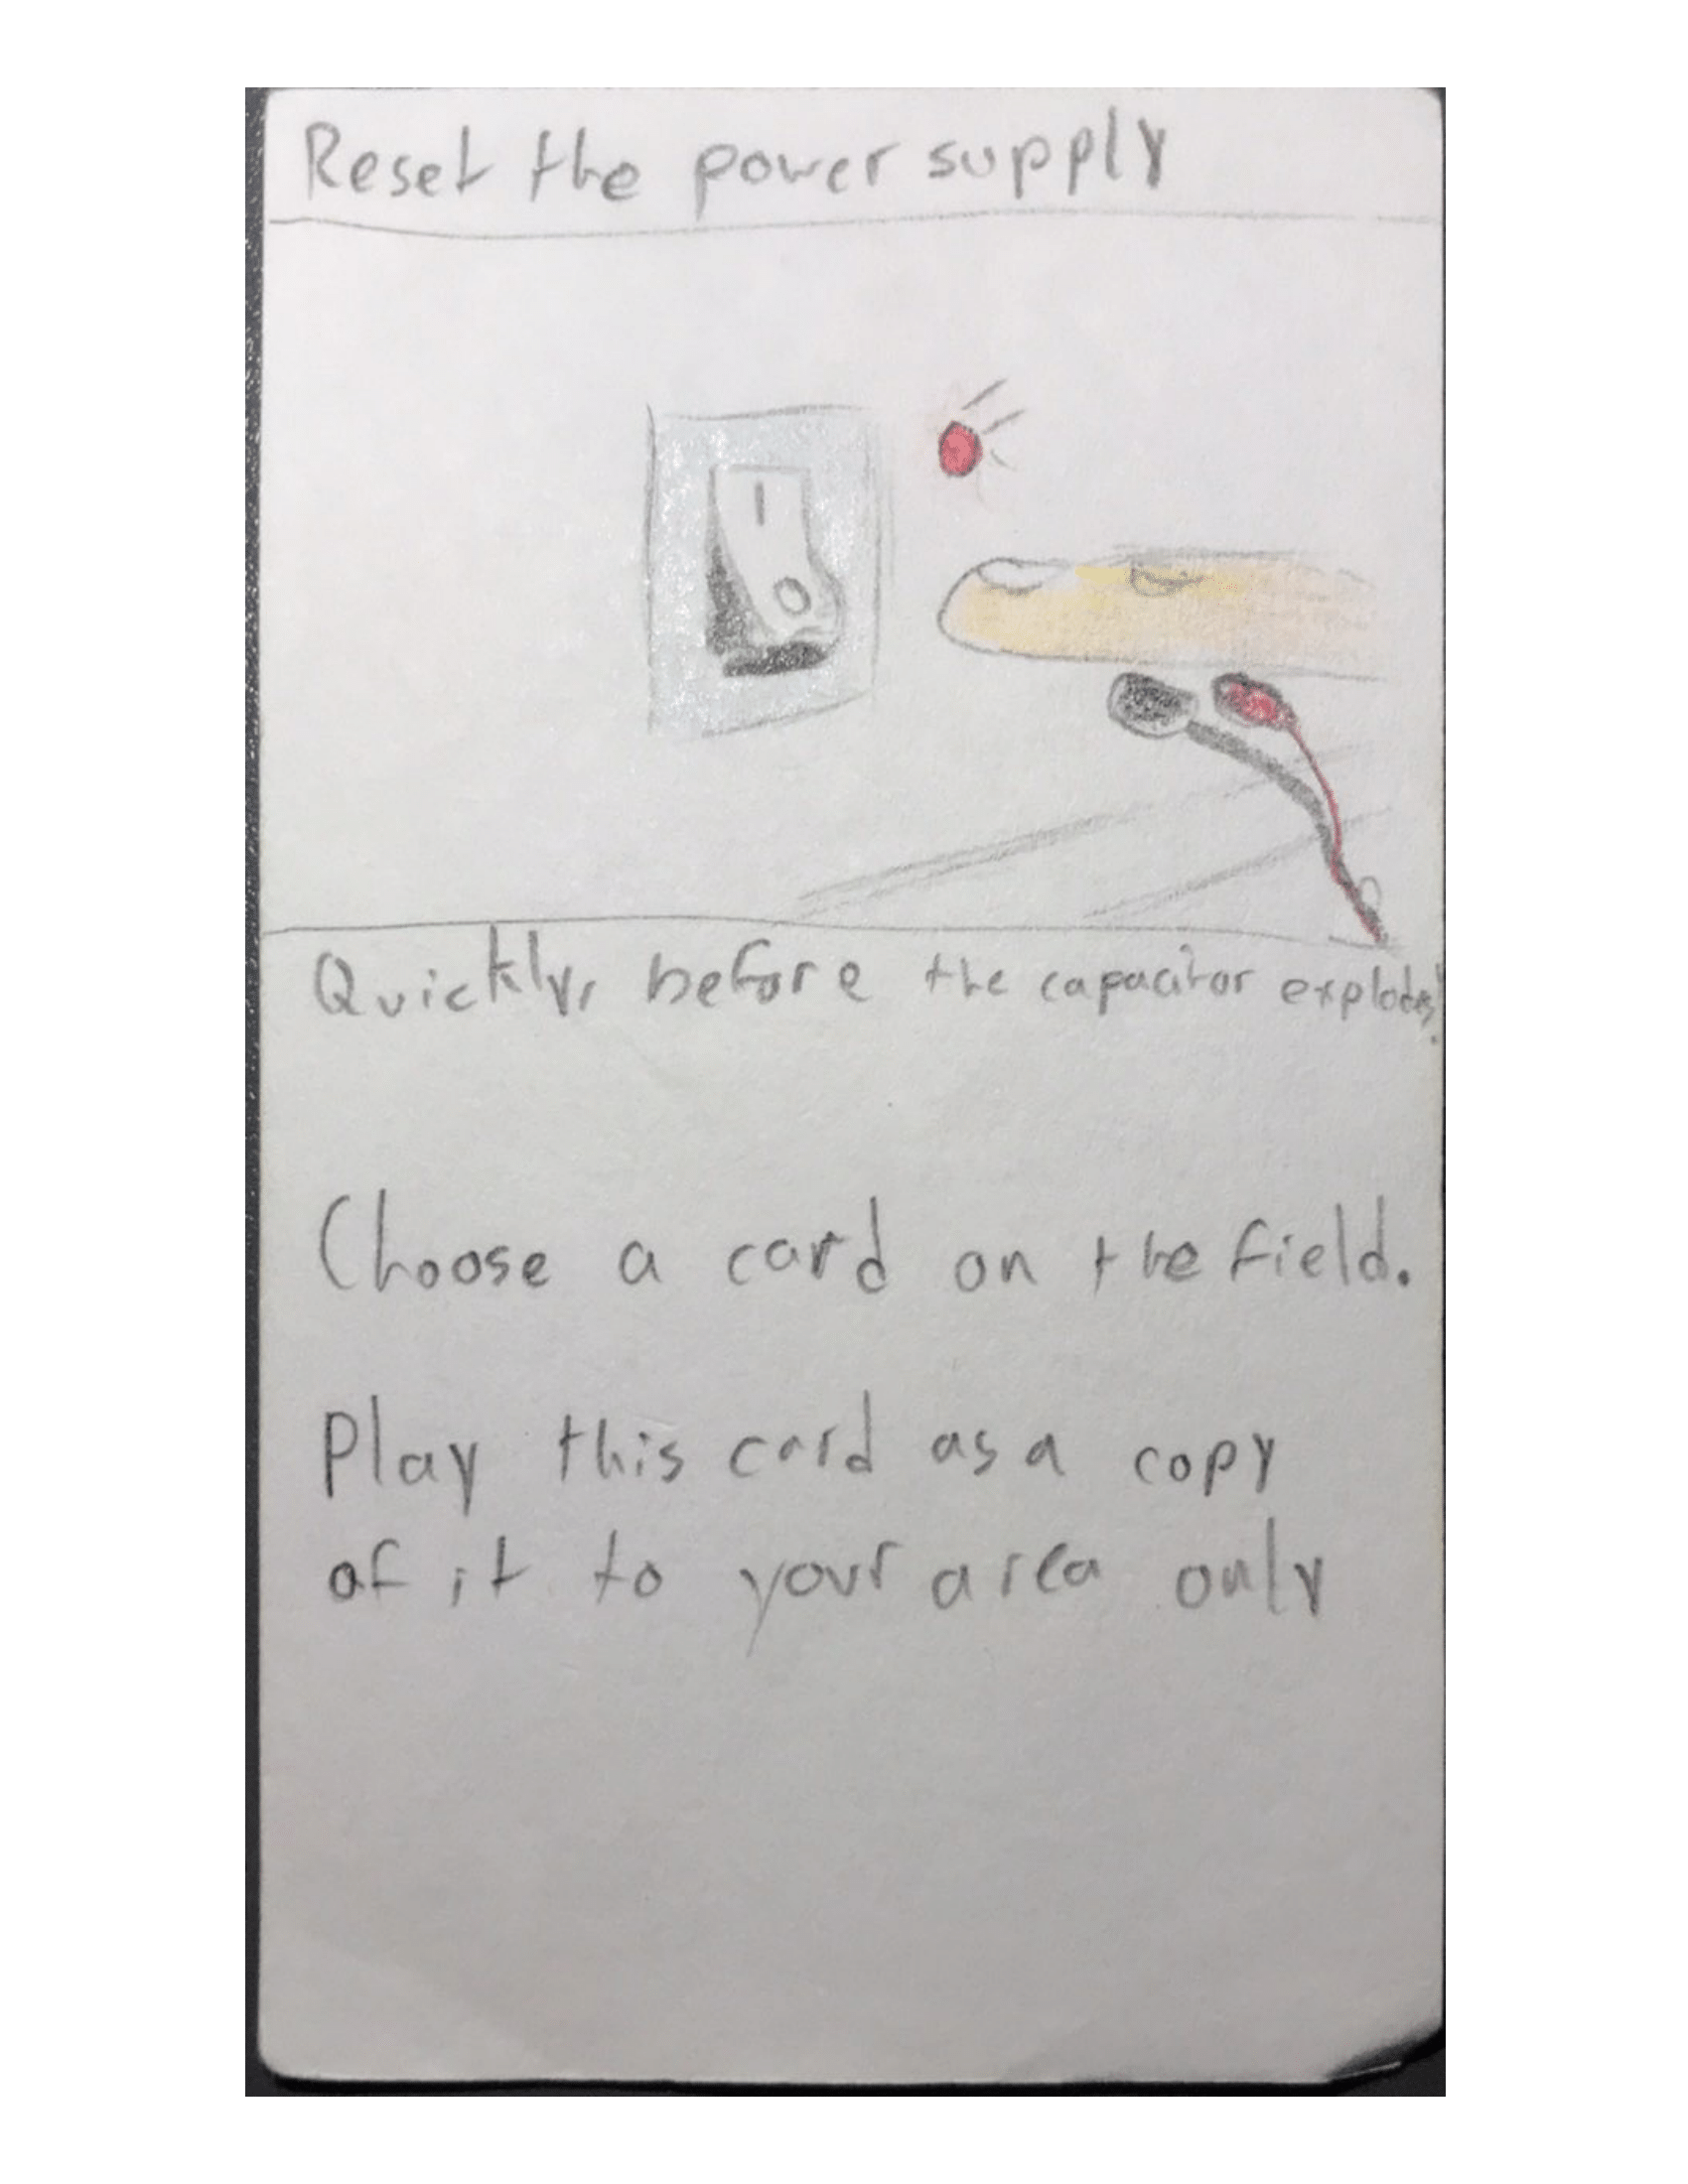 Reset the power supply
Quickly, before the capacitor explodes!
Choose a card on the field.
Play this card as a copy
of it to your area only